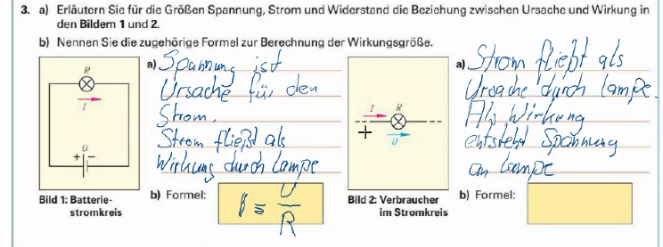 3. a) Erläutern Sie für die Größen Spannung, Strom und Widerstand die Beziehung zwischen Ursache und Wirkung in
den Bildern 1 und 2.
b) Nennen Sie die zugehörige Formel zur Berechnung der Wirkungsgröße.
R
I
U
+ −
Bild 1: Batterie-
stromkreis
a) Spannung ist
Ursache für den
Strom.
Strom fließt als
Wirkung durch Lampe
b) Formel: I = U / R
I R
+
U
Bild 2: Verbraucher
im Stromkreis
a) Strom fließt als
Ursache durch Lampe.
Als Wirkung
entsteht Spannung
an Lampe
b) Formel: